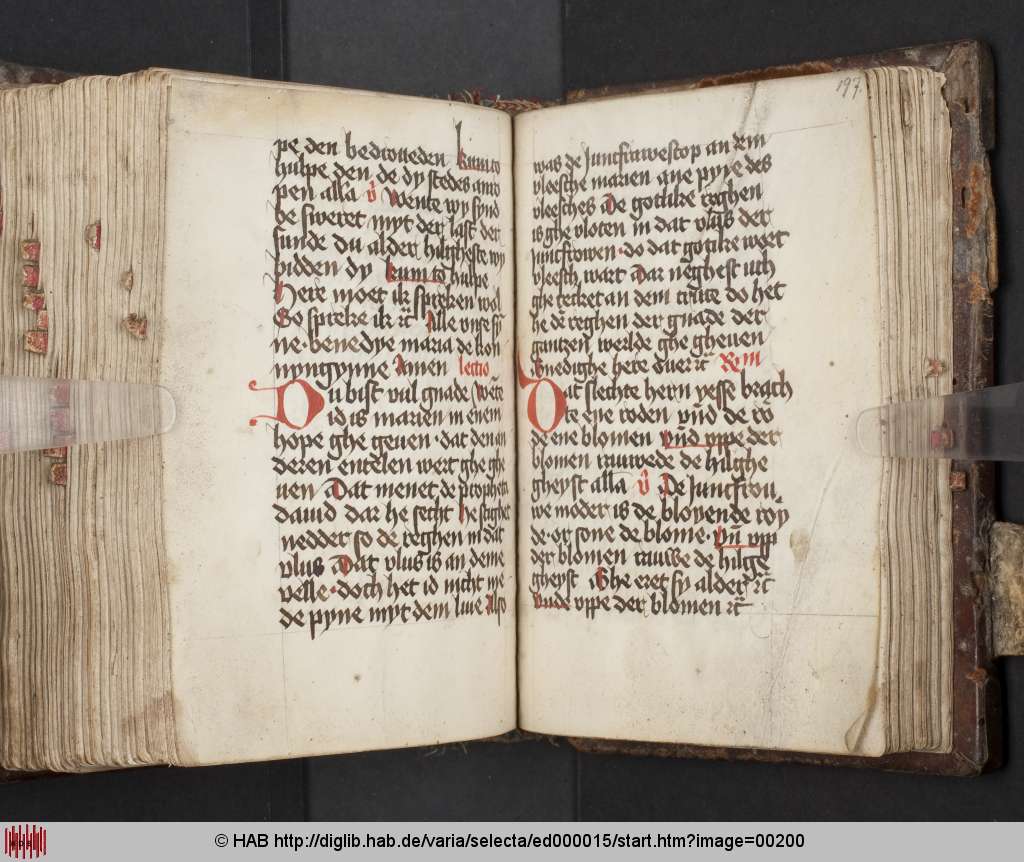 pe den bedroueden kum to
hulpe den de dy stedes anro
pen alla v̄ Wente wy synd
be sweret myt der last der
sunde du alder hilgheste wy
bidden dy kum to hulpe
Here moet ik spreken wol
So spreke ik rc̄ Alle vnse sy
ne · benedye maria de kon
nyngynne Amen lectio
Du bist vul gnade Wēte
id is marien in enem
hope ghe geuen · dat den an
deren entēlen wert ghe ghe
uen Dat menet de propheta
dauid dar he secht he stighet
nedder so de reghen in dat
vlus Dat vlus is an deme
velle · doch het id nicht me
de pyne myt dem liue Also
197
was de Juncfrawescop an dem
vleesche marien ane pyne des
vleesches De gotlike reghen
is ghe vloten in dat vlus der
juncfrowen · do dat gotlike wort
vleesch wart Dar neghest uth
ghe recket an dem cruce do het
he dē reghen der gnade der
gantzen werlde ghe gheuen
Gnedighe here ouer rc̄
Dat slechte hern yesse brach
te ene roden vnd de ro
de ene blomen vnd vppe der
blomen rauwede de hilghe
gheyst alla v̄ De Juncfrou
we moder is de bloyende roy
de · or sone de blome · vn̄ vpp
der blomen rauwe de hilge
gheyst Ghe eret sy alder rc̄
vnde vppe der blomen rc̄
© HAB http://diglib.hab.de/varia/selecta/ed000015/start.htm?image=00200